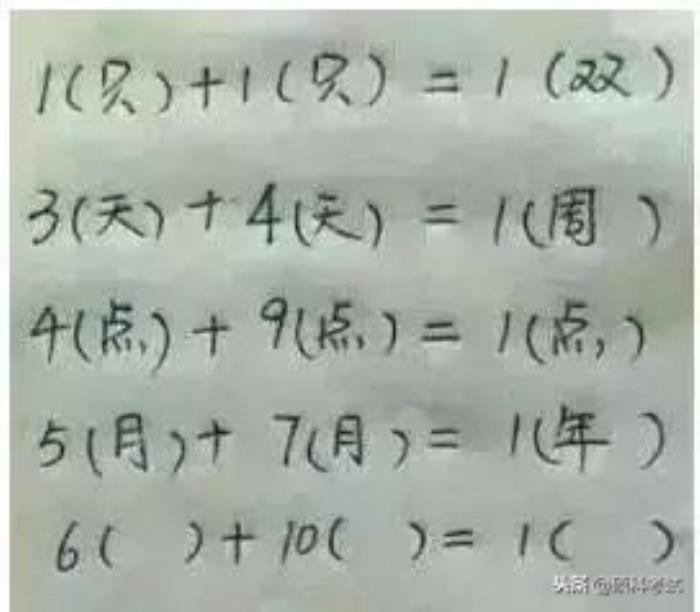 1(只)+1(只)=1(双)
3(天)+4(天)=1(周)
4(点)+9(点)=1(点)
5(月)+7(月)=1(年)
6( )+10( )=1( )
头条